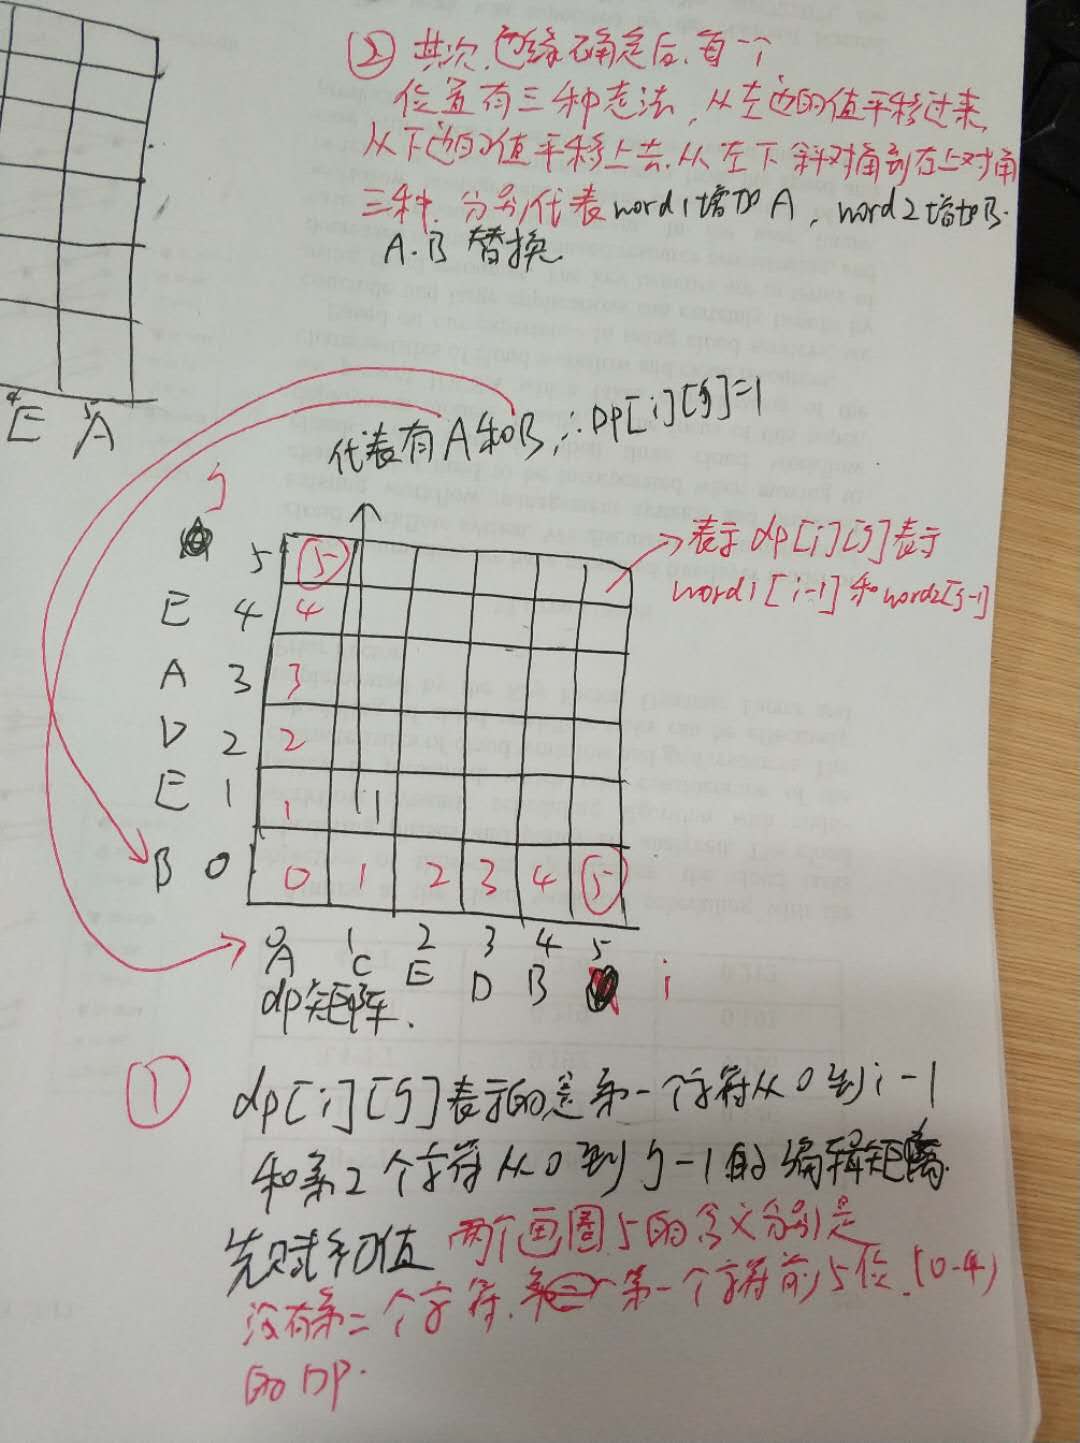 ② 其次,边缘确定后,每一个
位置有三种走法,从左边的值平移过来,
从下边的值平移上去,从左下斜对角到右上对角
三种,分别代表word1增加A,word2增加B.
A.B替换
4 5
E A
代表有A和B,∴DP[i][j]=1
j
5 ⑤
E 4 4
A 3 3
D 2 2
E 1 1 1
B 0 0 1 2 3 4 ⑤
0 1 2 3 4 5
A C E D B i
→表示dp[i][j]表示
word1[i-1]和word2[j-1]
dp矩阵.
① dp[i][j]表示的是第一个字符从0到i-1
和第2个字符从0到j-1的编辑距离.
先赋初值 两个画圈5的含义分别是
没有第二个字符. 第一个字符前5位.(0-4)
的DP.